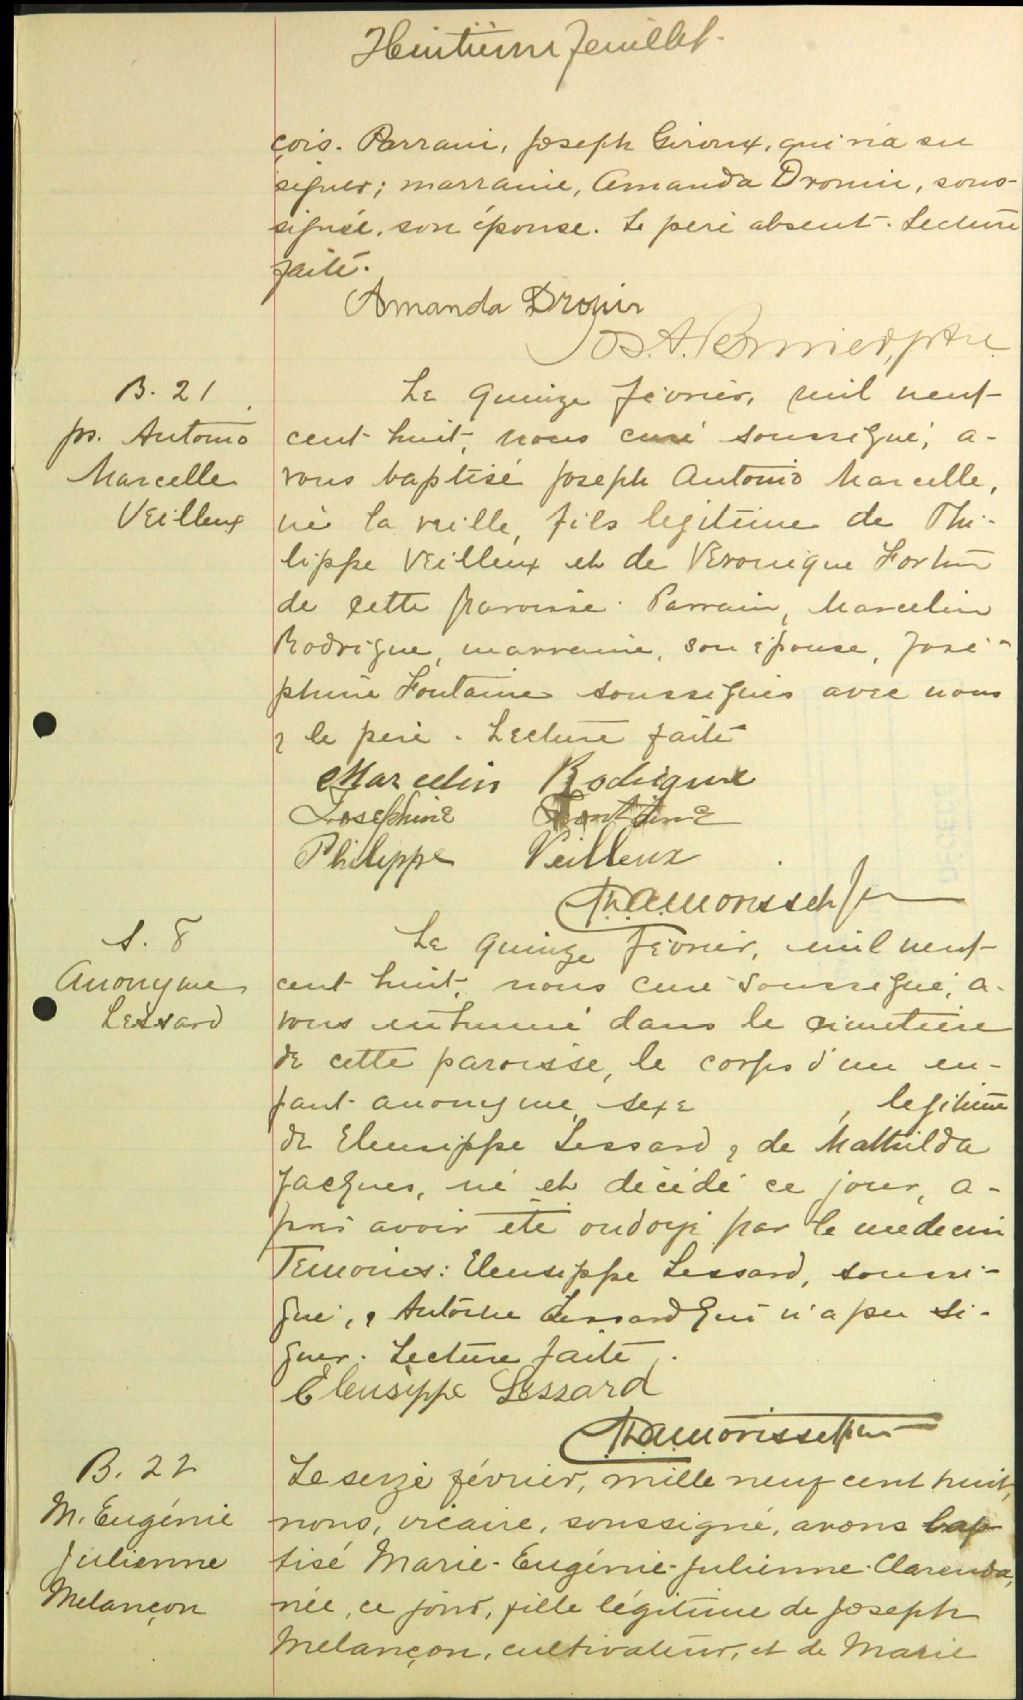 Huitième feuillet.
çois. Parrain, Joseph Giroux, qui n'a su
signer; marraine, Amanda Drouin, sous-
signée, son épouse. Le père absent. Lecture
faite.
Amanda Drouin
Jos. A. Bernier, ptre
B. 21
Jos. Antonio
Marcelle
Veilleux
Le quinze février, mil neuf-
cent-huit, nous curé soussigné, a-
vons baptisé Joseph Antonio Marcelle,
né la veille, fils légitime de Phi-
lippe Veilleux et de Véronique Fortin
de cette paroisse. Parrain, Marcelin
Rodrigue, marraine, son épouse, José-
phine Fontaine soussignés avec nous
& le père. Lecture faite
Marcelin Rodrigue
Josephine Fontaine
Philippe Veilleux
S. 8
Anonyme
Lessard
Le quinze février, mil neuf-
cent huit, nous curé soussigné, a-
vons inhumé dans le cimetière
de cette paroisse, le corps d'un en-
fant anonyme, sexe , légitime
de Eleusippe Lessard & de Mathilda
Jacques, né et décédé ce jour, a-
près avoir été ondoyé par le médecin
Témoins: Eleusippe Lessard, soussi-
gné, & Antoine Lessard qui n'a pu si-
gner. Lecture faite.
Eleusippe Lessard
B. 22
M. Eugénie
Julienne
Melançon
Le seize février, mille neuf cent huit,
nous, vicaire, soussigné, avons bap-
tisé Marie-Eugénie-Julienne-Clarenda,
née, ce jour, fille légitime de Joseph
Melançon, cultivateur, et de Marie